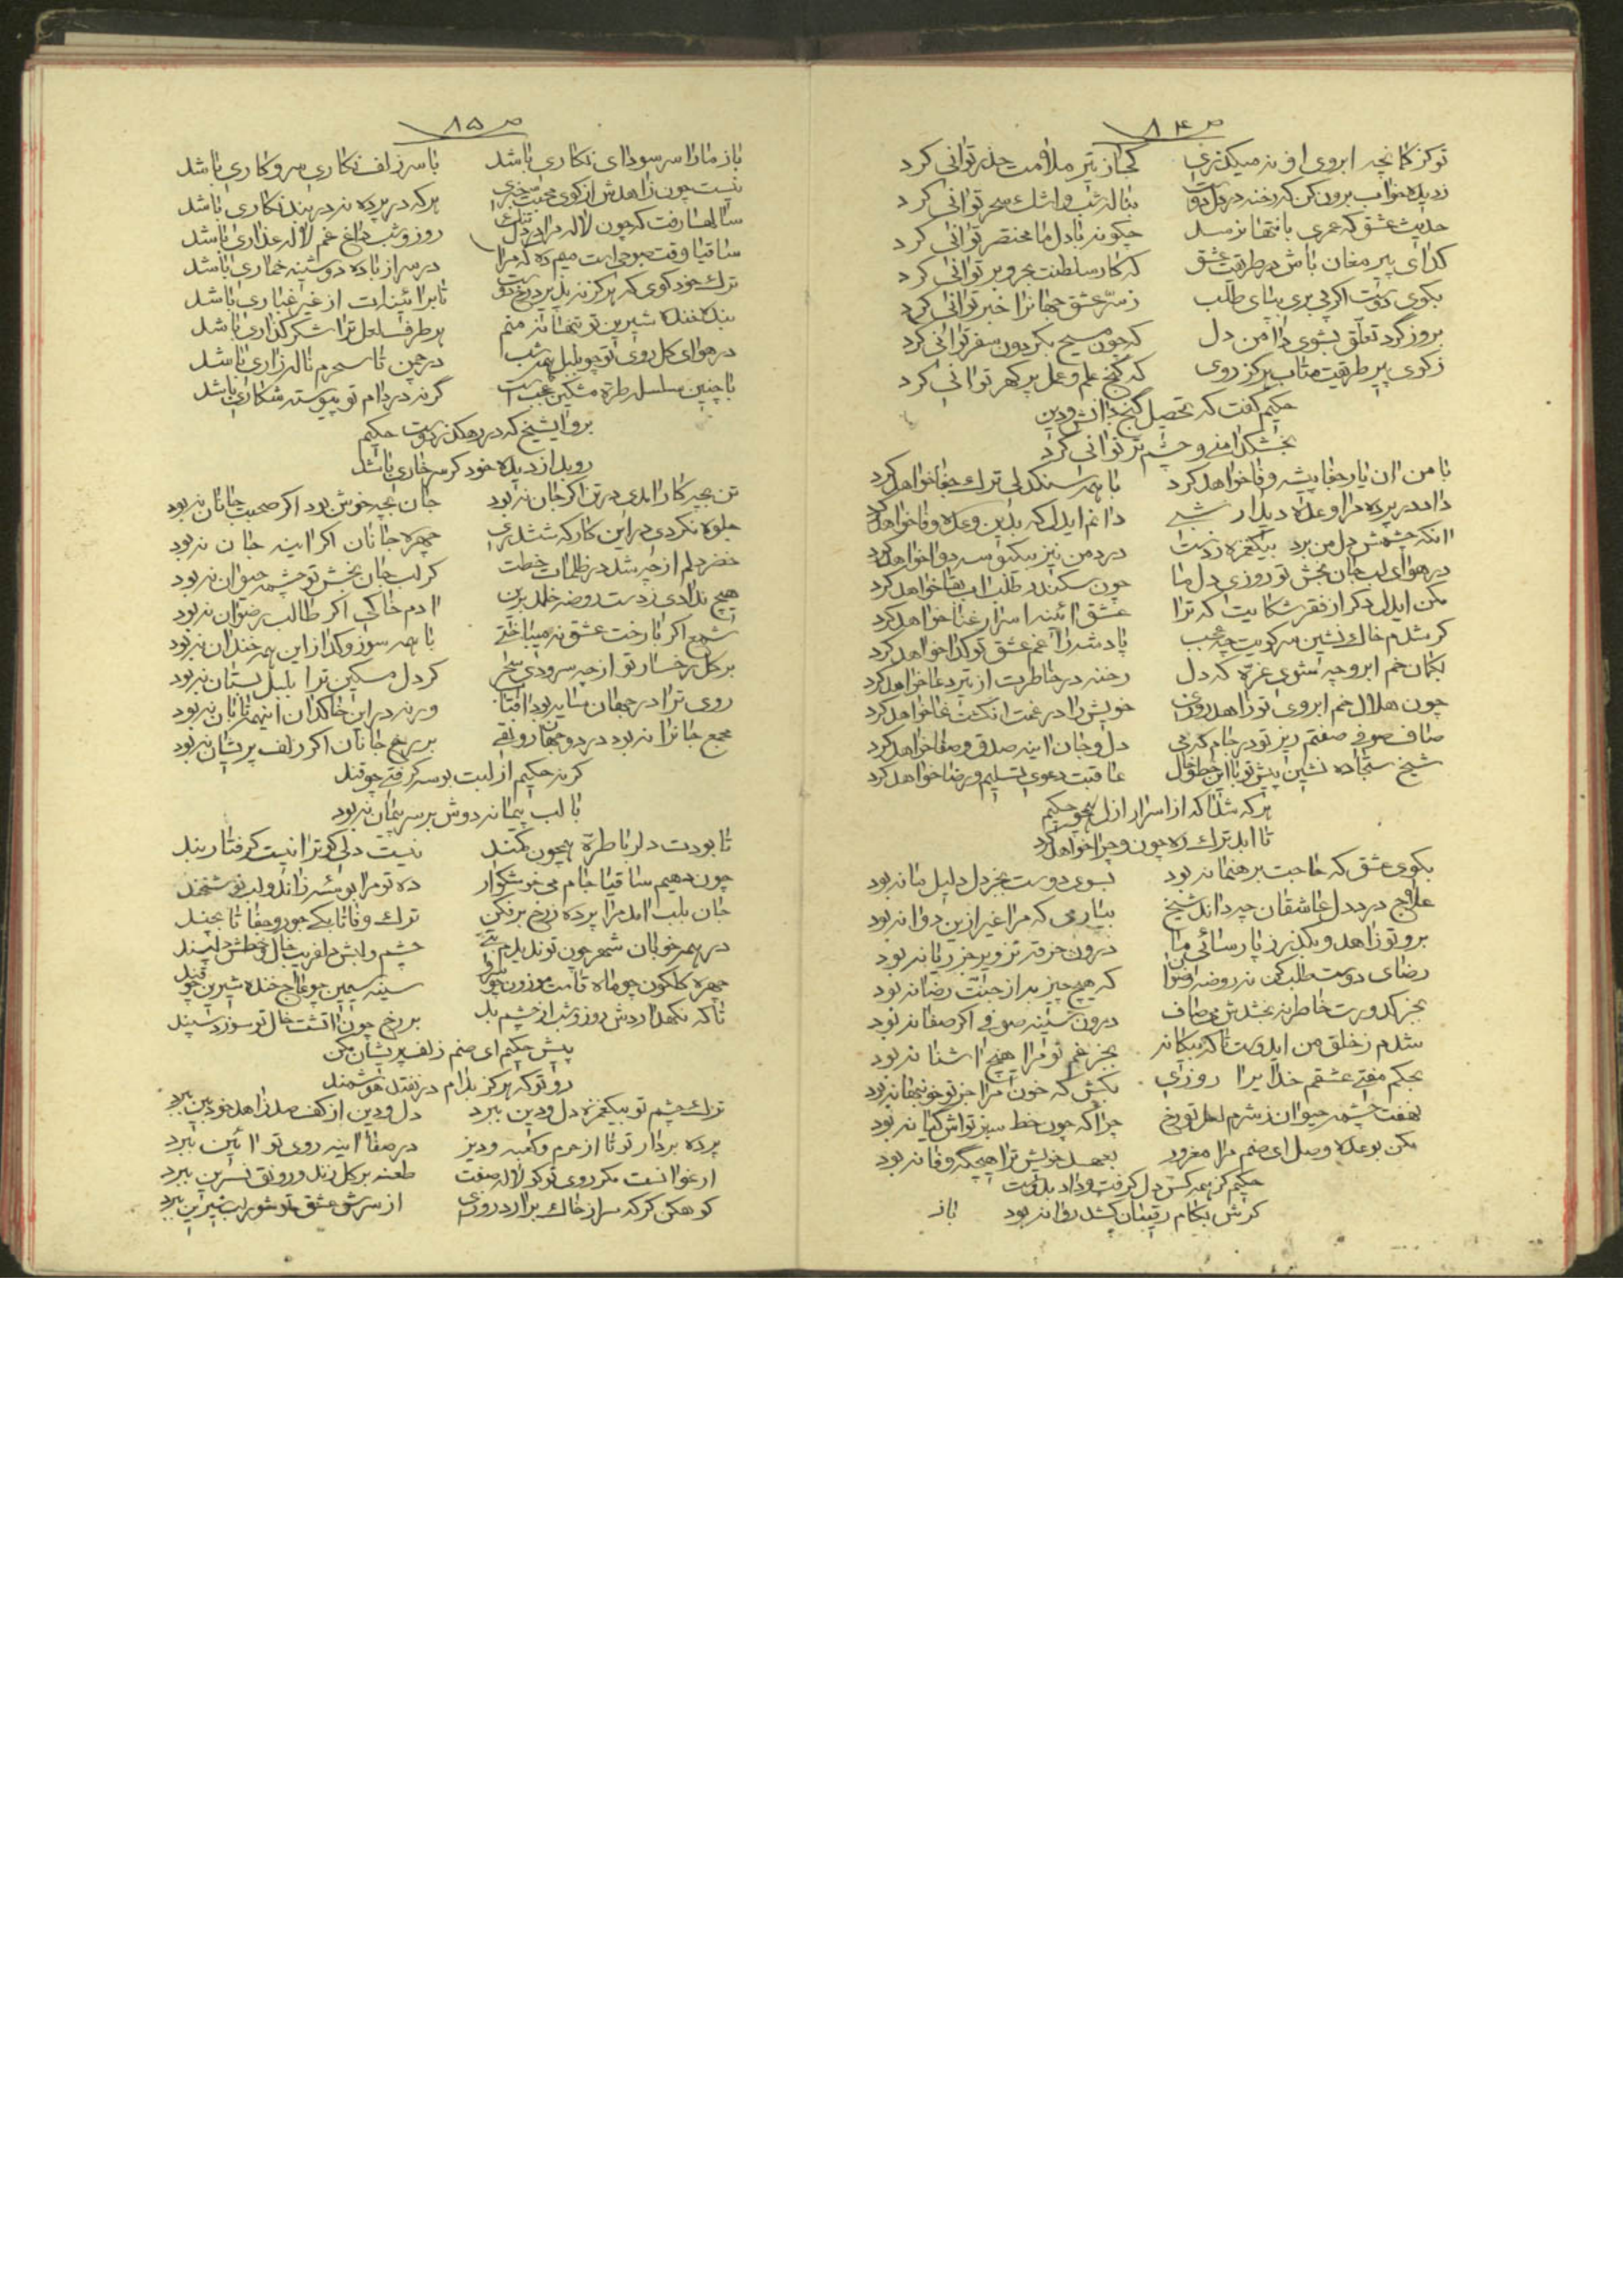 ص ۸۴
تو کز کمانچه ابروی او نه میکذری کجا ز تیر ملامت حذر توانی کرد
ز دیده خواب برون کن که رخنه در دل دوست بناله شب و اشك سحر توانی کرد
حدیث عشق که عمری بانتها نرسد چکونه بادل ما مختصر توانی کرد
کدای پیر مغان باش در طریقت عشق که کار سلطنت بحر و بر توانی کرد
بکوی دوست اکر پی بری بپای طلب ز سر عشق جهانرا خبر توانی کرد
بروز کرد تعلق بشوی دامن دل که چون مسیح بکردون سفر توانی کرد
ز کوی پیر طریقت متاب هرکز روی که کنج علم و عمل پر کهر توانی کرد
حکیم کفت که تحصیل کنج دانش و دین
بخشك دامنی و چشم تر توانی کرد
با من ان یار جفا پیشه وفا خواهد کرد با همه سنکدلی ترك جفا خواهد کرد
داد در پرده مرا وعده دیدار شبی دانم ایدل که بدین وعده وفا خواهد کرد
انکه چشمش دل من برد بیکغمزه ز دست درد من نیز بیکبوسه دوا خواهد کرد
در هوای لب جان بخش تو روزی دل ما چون سکندر طلب اب بقا خواهد کرد
مکن ایدل دکر از فقر شکایت که ترا عشق ائینه اسرار غنا خواهد کرد
کر شدم خاك نشین سر کویت چه عجب پادشه را غم عشق تو کدا خواهد کرد
بکمان خم ابرو چه شوی غره که دل رخنه در خاطرت از تیر دعا خواهد کرد
چون هلال خم ابروی تو زاهد روزی خویش را در غمت انکشت نما خواهد کرد
صاف صوفی صفتم ریز تو در جام که می دل و جان اینه صدق و صفا خواهد کرد
شیخ سجاده نشین پیش تو با این خط و خال عاقبت دعوی تسلیم و رضا خواهد کرد
هر که شد اکه از اسرار ازل همچو حکیم
تا ابد ترك ره چون و چرا خواهد کرد
بکوی عشق که حاجت برهنما نبود بسوی دوست بجز دل دلیل ما نبود
علاج درد دل عاشقان چه داند شیخ بیار می که مرا غیر ازین دوا نبود
برو تو زاهد و بکذر ز پارسائی ما درون خرقه تزویر جز ریا نبود
رضای دوست طلب کن نه روضه رضوان که هیچ چیز به از جنت رضا نبود
بجز کدورت خاطر نبخشدش می صاف درون سینه صوفی اکر صفا نبود
شدم ز خلق من ایدوست تا که بیکانه بجز غم تو مرا هیچ اشنا نبود
بحکم مفتی عشقم خدایرا روزی بکش که خون مرا جز تو خونبها نبود
نهفت چشمه حیوان ز شرم لعل تو رخ چرا که چون خط سبز تواش کیا نبود
مکن بوعده وصل ای صنم مرا مغرور بعهد خویش ترا هیچکه وفا نبود
حکیم کز همه کس دل کرفت و داد بدوست
کرش بکام رقیبان کشد روا نبود
باز
ص ۸۵
باز ما را سر سودای نکاری باشد با سر زلف نکاری سر و کاری باشد
نیست چون زاهدش از کوی محبت خبری هر که در پرده نه در بند نکاری باشد
سالها رفت که چون لاله مرا در دل تنك روز و شب داغ غم لاله عذاری باشد
ساقیا وقت صبوحی است میم ده که مرا در سر از باده دوشینه خماری باشد
ترك خود کوی که هرکز نپذیرد رخ دوست تا بر ائینه‌ات از غیر غباری باشد
بنده خنده شیرین تو تنها نه منم هر طرف لعل ترا شکر کذاری باشد
در هوای کل روی تو چو بلبل همه شب در چمن تا سحرم ناله زاری باشد
با چنین سلسله طره مشکین عجب است کر نه در دام تو پیوسته شکاری باشد
برو ایشیخ که در رهکذر دوست حکیم
روبد از دیده خود کر سر خاری باشد
تن بچه کار امدی در تن اکر جان نبود جان بچه خوش بود اکر صحبت جانان نبود
جلوه نکردی در این کارکه ششدری چهره جانان اکر اینه جان نبود
خضر دلم از چه شد در ظلمات خطت کر لب جان بخش تو چشمه حیوان نبود
هیچ ندادی ز دست روضه خلد برین ادم خاکی اکر طالب رضوان نبود
شمع اکر با رخت عشق نمیباختی با همه سوز و کداز این همه خندان نبود
بر کل رخسار تو از چه سرودی سحر کر دل مسکین ترا بلبل بستان نبود
روی ترا در جهان سایه بود افتاب ورنه در این خاکدان اینهمه تابان نبود
مجمع جانرا نبود در دو جهان رونقی بر رخ جانان اکر زلف پریشان نبود
کر نه حکیم از لبت بوسه کرفتی چو قند
با لب پیمانه دوش بر سر پیمان نبود
تا بودت دلربا طره همچون کمند نیست دلی کو ترا نیست کرفتار بند
چون دهیم ساقیا جام می خوشکوار ده تو مرا بوسه زاندو لب نوشخند
جان بلب امد مرا پرده ز رخ برفکن ترك وفا تا بکی جور و جفا تا بچند
در همه خوبان شهر چون تو ندیدم بتی چشم و لبش دلفریب خال و خطش دلپسند
چهره کلکون چو ماه قامت موزون چو سرو سینه سیمین چو عاج خنده شیرین چو قند
تا که نکهداردش روز و شب از چشم بد بر رخ چون اتشت خال تو سوزد سپند
پیش حکیم ای صنم زلف پریشان مکن
رو تو که هرکز بدام در نفتد هوشمند
ترك چشم تو بیکغمزه دل و دین ببرد دل و دین از کف صد زاهد خودبین ببرد
پرده بردار تو تا از حرم و کعبه و دیر در صفا اینه روی تو ائین ببرد
ارغوانست مکر روی تو کو لاله صفت طعنه بر کل زند و رونق نسرین ببرد
کوهکن کر که سر از خاك برارد روزی از سرش عشق تو شور لب شیرین ببرد